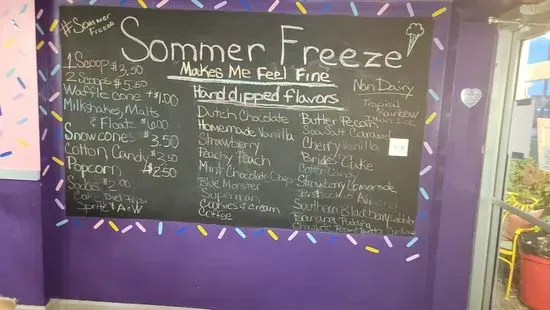 #Sommer
Freeze
Sommer Freeze
Makes Me Feel Fine
Hand dipped flavors
1 Scoop $3.50
2 Scoops $5.50
Waffle cone +$1.00
Milkshakes, Malts
& Floats
Snowcones 3.50
Cotton Candy $3.50
Popcorn $2.50
Sodas $2.00
Coke Diet Pepsi
Sprite A&W
Dutch Chocolate
Homemade Vanilla
Strawberry
Peachy Peach
Mint Chocolate Chip
Blue Monster
Superman
Cookies & cream
Coffee
Butter Pecan
Sea Salt Caramel
Cherry Vanilla
Brides Cake
Cotton Candy
Strawberry Lemonade
Pistachio Almond
Southern Blackberry Cobbler
Banana Pudding
Chocolate Peanut Butter
Non Dairy
Tropical
Rainbow
Italian Ice